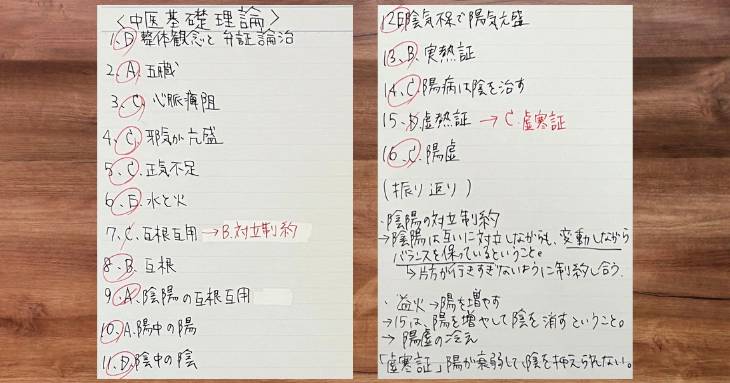 〈中医基礎理論〉
1. D 整体観念と弁証論治
2. A. 五臓
3. C. 心脈痺阻
4. C. 邪気が亢盛
5. C. 正気不足
6. D. 水と火
7. C. 互根互用 → B. 対立制約
8. B. 互根
9. A. 陰陽の互根互用
10. A. 陽中の陽
11. D 陰中の陰
12. E 陰気不保で陽気亢盛
13. B. 実熱証
14. C. 陽病は陰を治す
15. D. 虚熱証 → C. 虚寒証
16. C. 陽虚
(振り返り)
・陰陽の対立制約
→陰陽は互いに対立しながらも、変動しながら
バランスを保っているということ。
↳片方が行きすぎないように制約し合う.
・益火→陽を増やす
→15は、陽を増やして陰を消すということ。
→ 陽虚の冷え
「虚寒証」陽が衰弱して、陰を抑えられない。